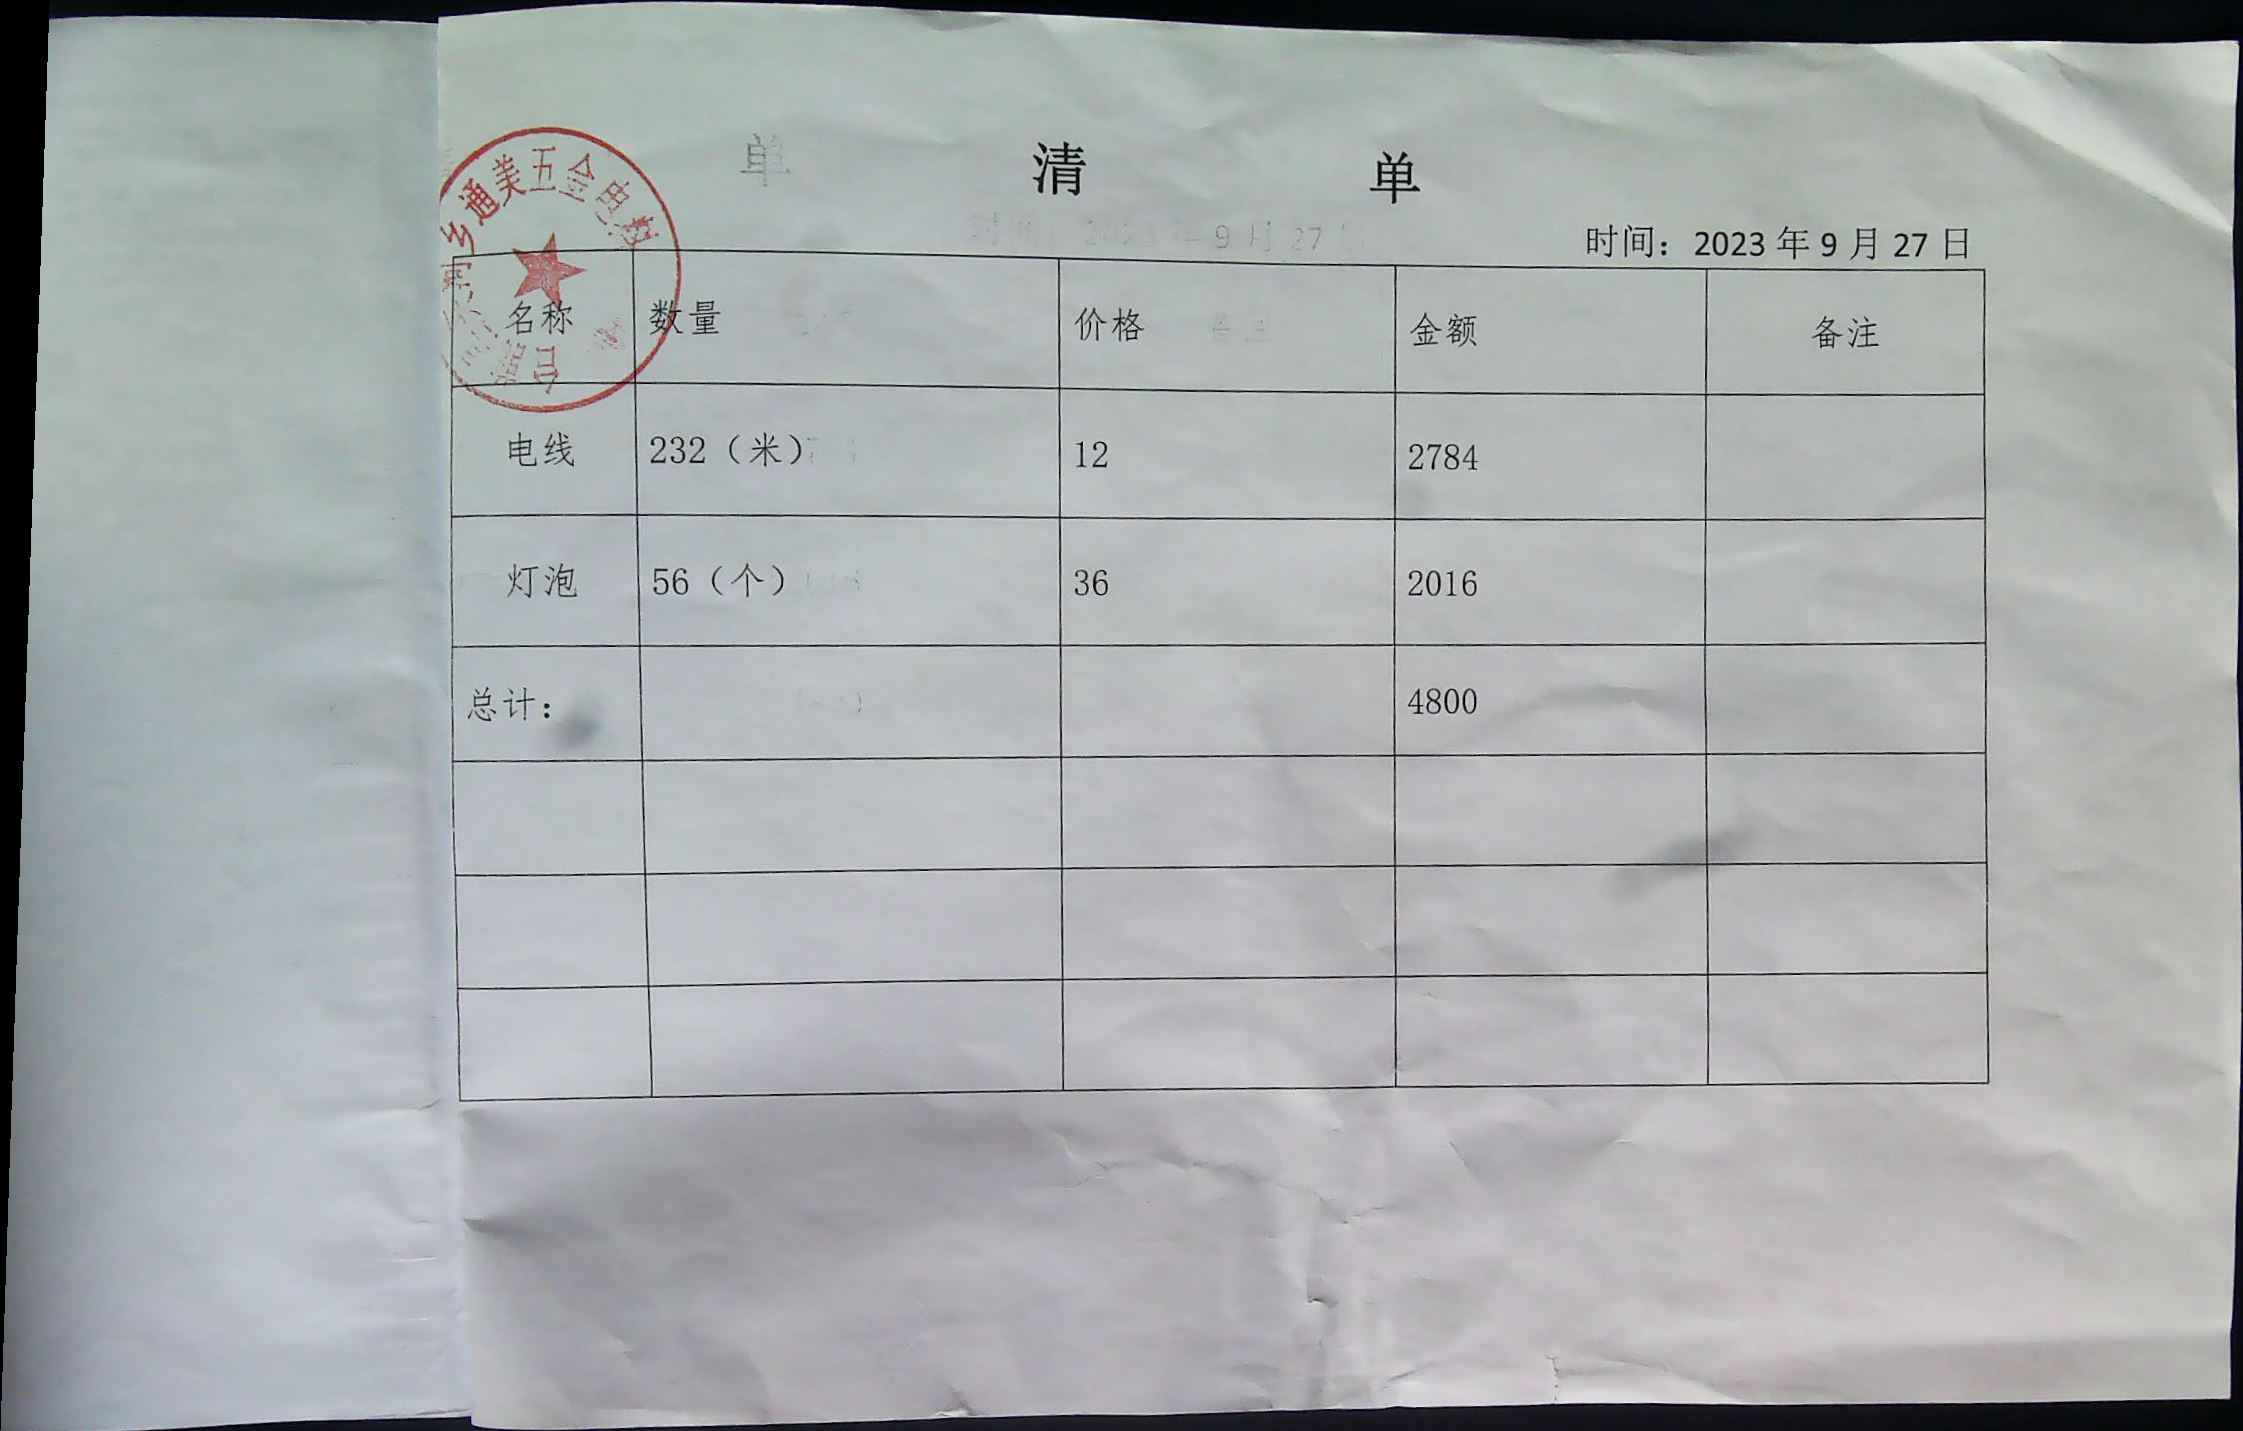 清 单
时间：2023 年 9 月 27 日
乡通美五金电
名称 数量 价格 金额 备注
电线 232（米） 12 2784
灯泡 56（个） 36 2016
总计： 4800